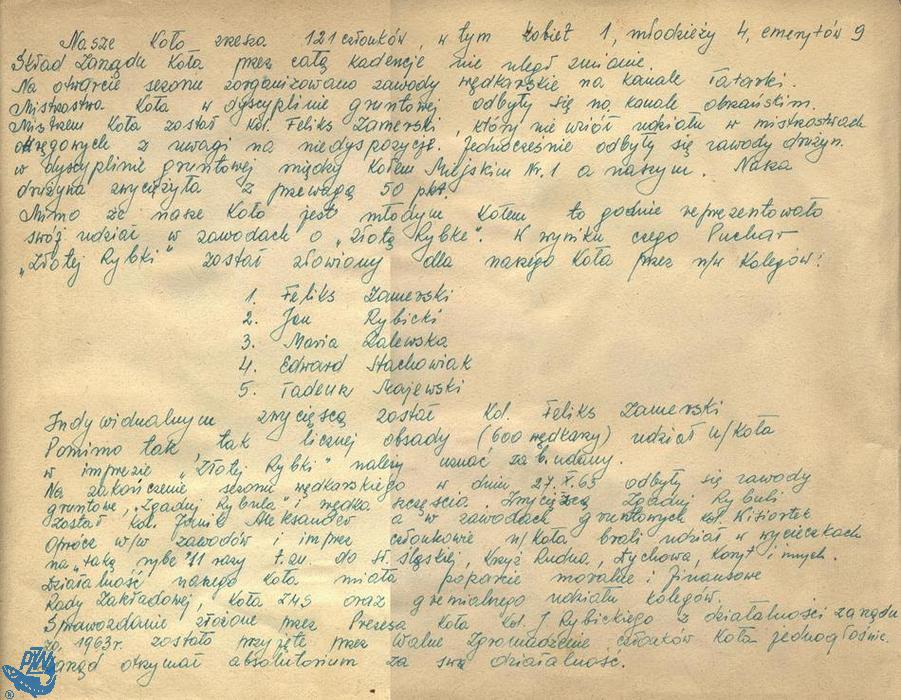 Nasze Koło zrzesza 121 członków, w tym kobiet 1, młodzieży 4, emerytów 9
Skład Zarządu Koła przez całą kadencję nie uległ zmianie.
Na otwarcie sezonu zorganizowano zawody wędkarskie na kanale Tatarki.
Mistrzostwa Koła w dyscyplinie gruntowej odbyły się na kanale obrzańskim.
Mistrzem Koła został kol. Feliks Zamerski, który nie wziął udziału w mistrzostwach
okręgowych z uwagi na niedyspozycję. Jednocześnie odbyły się zawody drużyn.
w dyscyplinie gruntowej między Kołem Miejskim Nr. 1 a naszym. Nasza
drużyna zwyciężyła z przewagą 50 pkt.
Mimo że nasze Koło jest młodym Kołem to godnie reprezentowało
swój udział w zawodach o „Złotą Rybkę". W wyniku czego Puchar
„Złotej Rybki" został złowiony dla naszego Koła przez n/w Kolegów:
1. Feliks Zamerski
2. Jan Rybicki
3. Maria Zalewska
4. Edward Stachowiak
5. Tadeusz Majewski
Indywidualnym zwycięzcą został kol. Feliks Zamerski
Pomimo tak tak licznej obsady (600 wędkarzy) udział n/Koła
w imprezie „Złotej Rybki" należy uznać za b. udany.
Na zakończenie sezonu wędkarskiego w dniu 27.X.63 odbyły się zawody
gruntowe, „Zgaduj Rybula" i wędka szczęścia. Zwycięzcą Zgaduj Rybuli
został kol. Janik Aleksander a w zawodach gruntowych kol.
Oprócz w/w zawodów i imprez członkowie n/Koła brali udział w wycieczkach
na „taką rybę" 11 razy t.zn. do śląskiej, Krzyż Rudna, Tychowa, i innych.
Działalność naszego Koła miała poparcie moralne i finansowe
Rady Zakładowej, Koła ZMS oraz gremialnego udziału kolegów.
Sprawozdanie złożone przez Prezesa Koła kol. J. Rybickiego z działalności zarządu
za 1963r. zostało przyjęte przez Walne Zgromadzenie członków Koła jednogłośnie.
Zarząd otrzymał absolutorium za swą działalność.
PZW
®